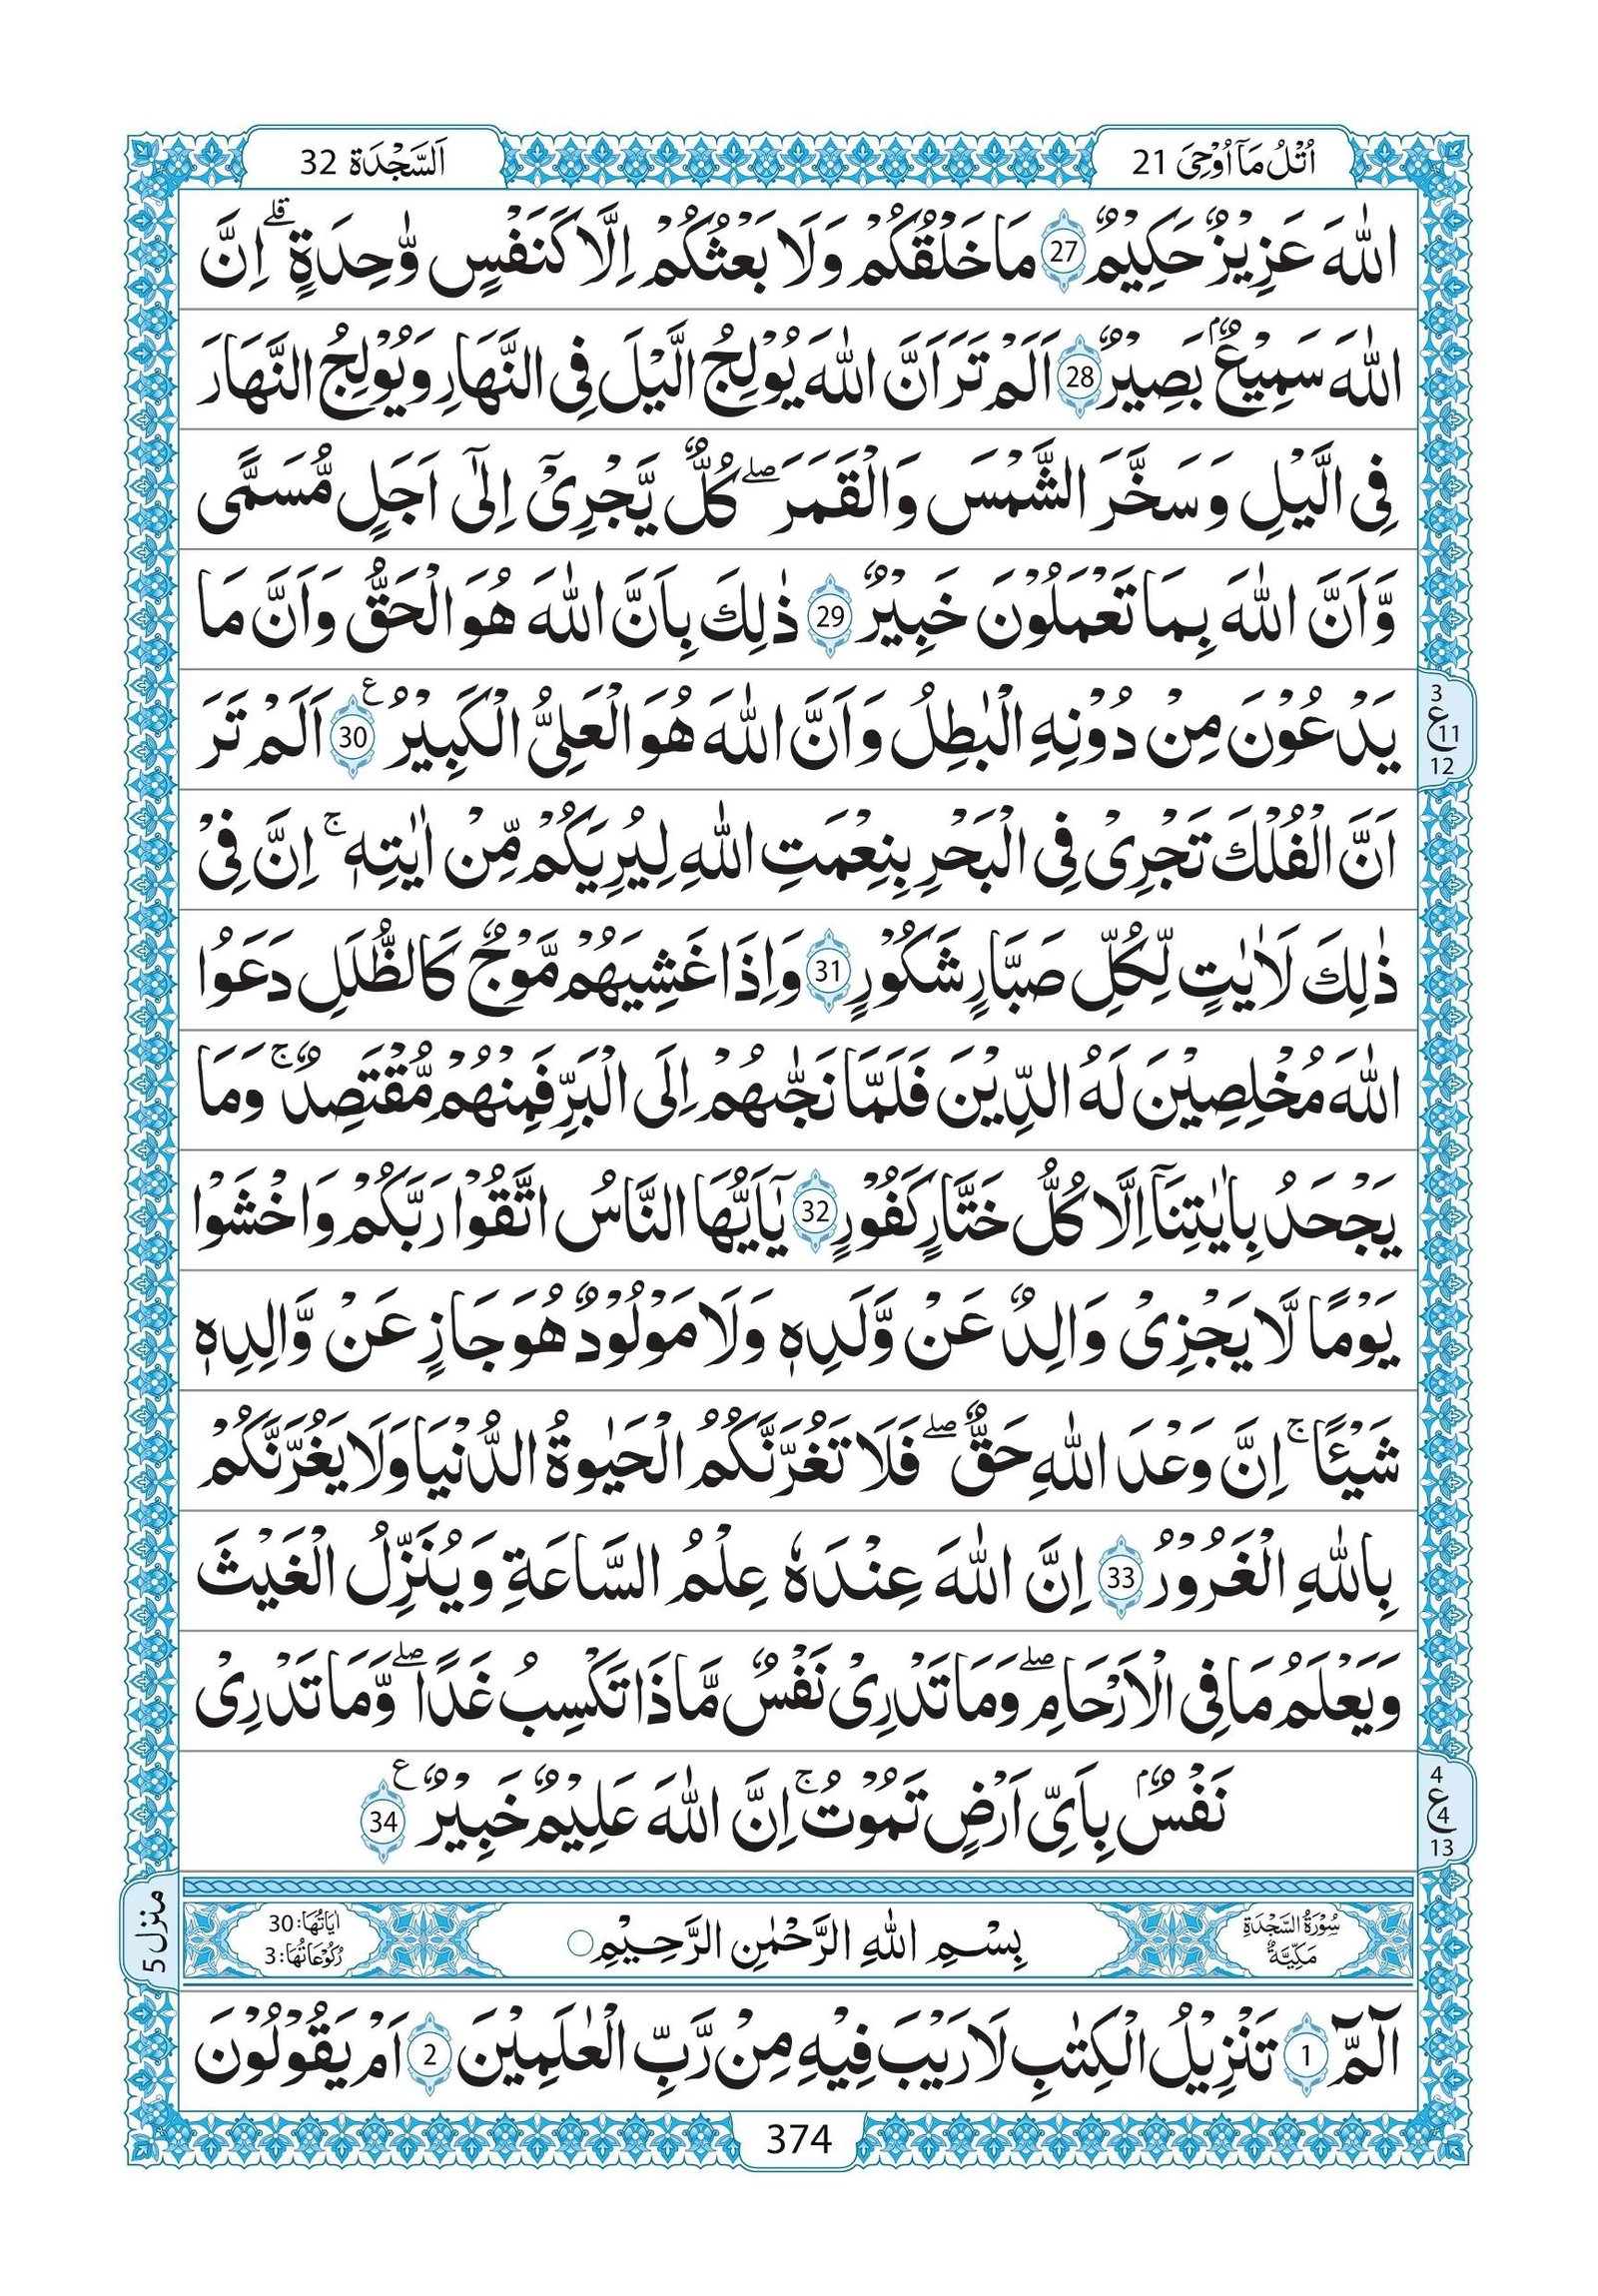 اُتْلُ مَاۤ اُوْحِیَ 21
اَلسَّجْدَة 32
اللّٰهَ عَزِیْزٌ حَكِیْمٌ 27 مَا خَلْقُكُمْ وَلَا بَعْثُكُمْ اِلَّا كَنَفْسٍ وَّاحِدَةٍ ؕ اِنَّ
اللّٰهَ سَمِیْعٌۢ بَصِیْرٌ 28 اَلَمْ تَرَ اَنَّ اللّٰهَ یُوْلِجُ الَّیْلَ فِی النَّهَارِ وَیُوْلِجُ النَّهَارَ
فِی الَّیْلِ وَسَخَّرَ الشَّمْسَ وَالْقَمَرَ ۖ كُلٌّ یَّجْرِیْۤ اِلٰۤی اَجَلٍ مُّسَمًّی
وَّاَنَّ اللّٰهَ بِمَا تَعْمَلُوْنَ خَبِیْرٌ 29 ذٰلِكَ بِاَنَّ اللّٰهَ هُوَ الْحَقُّ وَاَنَّ مَا
یَدْعُوْنَ مِنْ دُوْنِهِ الْبٰطِلُ وَاَنَّ اللّٰهَ هُوَ الْعَلِیُّ الْكَبِیْرُ ع 30 اَلَمْ تَرَ
3
ع 11
12
اَنَّ الْفُلْكَ تَجْرِیْ فِی الْبَحْرِ بِنِعْمَتِ اللّٰهِ لِیُرِیَكُمْ مِّنْ اٰیٰتِهٖ ۚ اِنَّ فِیْ
ذٰلِكَ لَاٰیٰتٍ لِّكُلِّ صَبَّارٍ شَكُوْرٍ 31 وَاِذَا غَشِیَهُمْ مَّوْجٌ كَالظُّلَلِ دَعَوُا
اللّٰهَ مُخْلِصِیْنَ لَهُ الدِّیْنَ فَلَمَّا نَجّٰىهُمْ اِلَی الْبَرِّ فَمِنْهُمْ مُّقْتَصِدٌ ۚ وَمَا
یَجْحَدُ بِاٰیٰتِنَاۤ اِلَّا كُلُّ خَتَّارٍ كَفُوْرٍ 32 یٰۤاَیُّهَا النَّاسُ اتَّقُوْا رَبَّكُمْ وَاخْشَوْا
یَوْمًا لَّا یَجْزِیْ وَالِدٌ عَنْ وَّلَدِهٖ وَلَا مَوْلُوْدٌ هُوَ جَازٍ عَنْ وَّالِدِهٖ
شَیْـًٔا ۚ اِنَّ وَعْدَ اللّٰهِ حَقٌّ ۖ فَلَا تَغُرَّنَّكُمُ الْحَیٰوةُ الدُّنْیَا وَلَا یَغُرَّنَّكُمْ
بِاللّٰهِ الْغَرُوْرُ 33 اِنَّ اللّٰهَ عِنْدَهٗ عِلْمُ السَّاعَةِ وَیُنَزِّلُ الْغَیْثَ
وَیَعْلَمُ مَا فِی الْاَرْحَامِ ۖ وَمَا تَدْرِیْ نَفْسٌ مَّاذَا تَكْسِبُ غَدًا ۖ وَّمَا تَدْرِیْ
نَفْسٌۢ بِاَیِّ اَرْضٍ تَمُوْتُ ۚ اِنَّ اللّٰهَ عَلِیْمٌ خَبِیْرٌ ع 34
4
ع 4
13
منزل 5
سُوْرَةُ السَّجْدَةِ
مَكِّیَّةٌ
بِسْمِ اللّٰهِ الرَّحْمٰنِ الرَّحِیْمِ
اٰیَاتُهَا: 30
رُكُوْعَاتُهَا: 3
الٓمّٓ 1 تَنْزِیْلُ الْكِتٰبِ لَا رَیْبَ فِیْهِ مِنْ رَّبِّ الْعٰلَمِیْنَ 2 اَمْ یَقُوْلُوْنَ
374